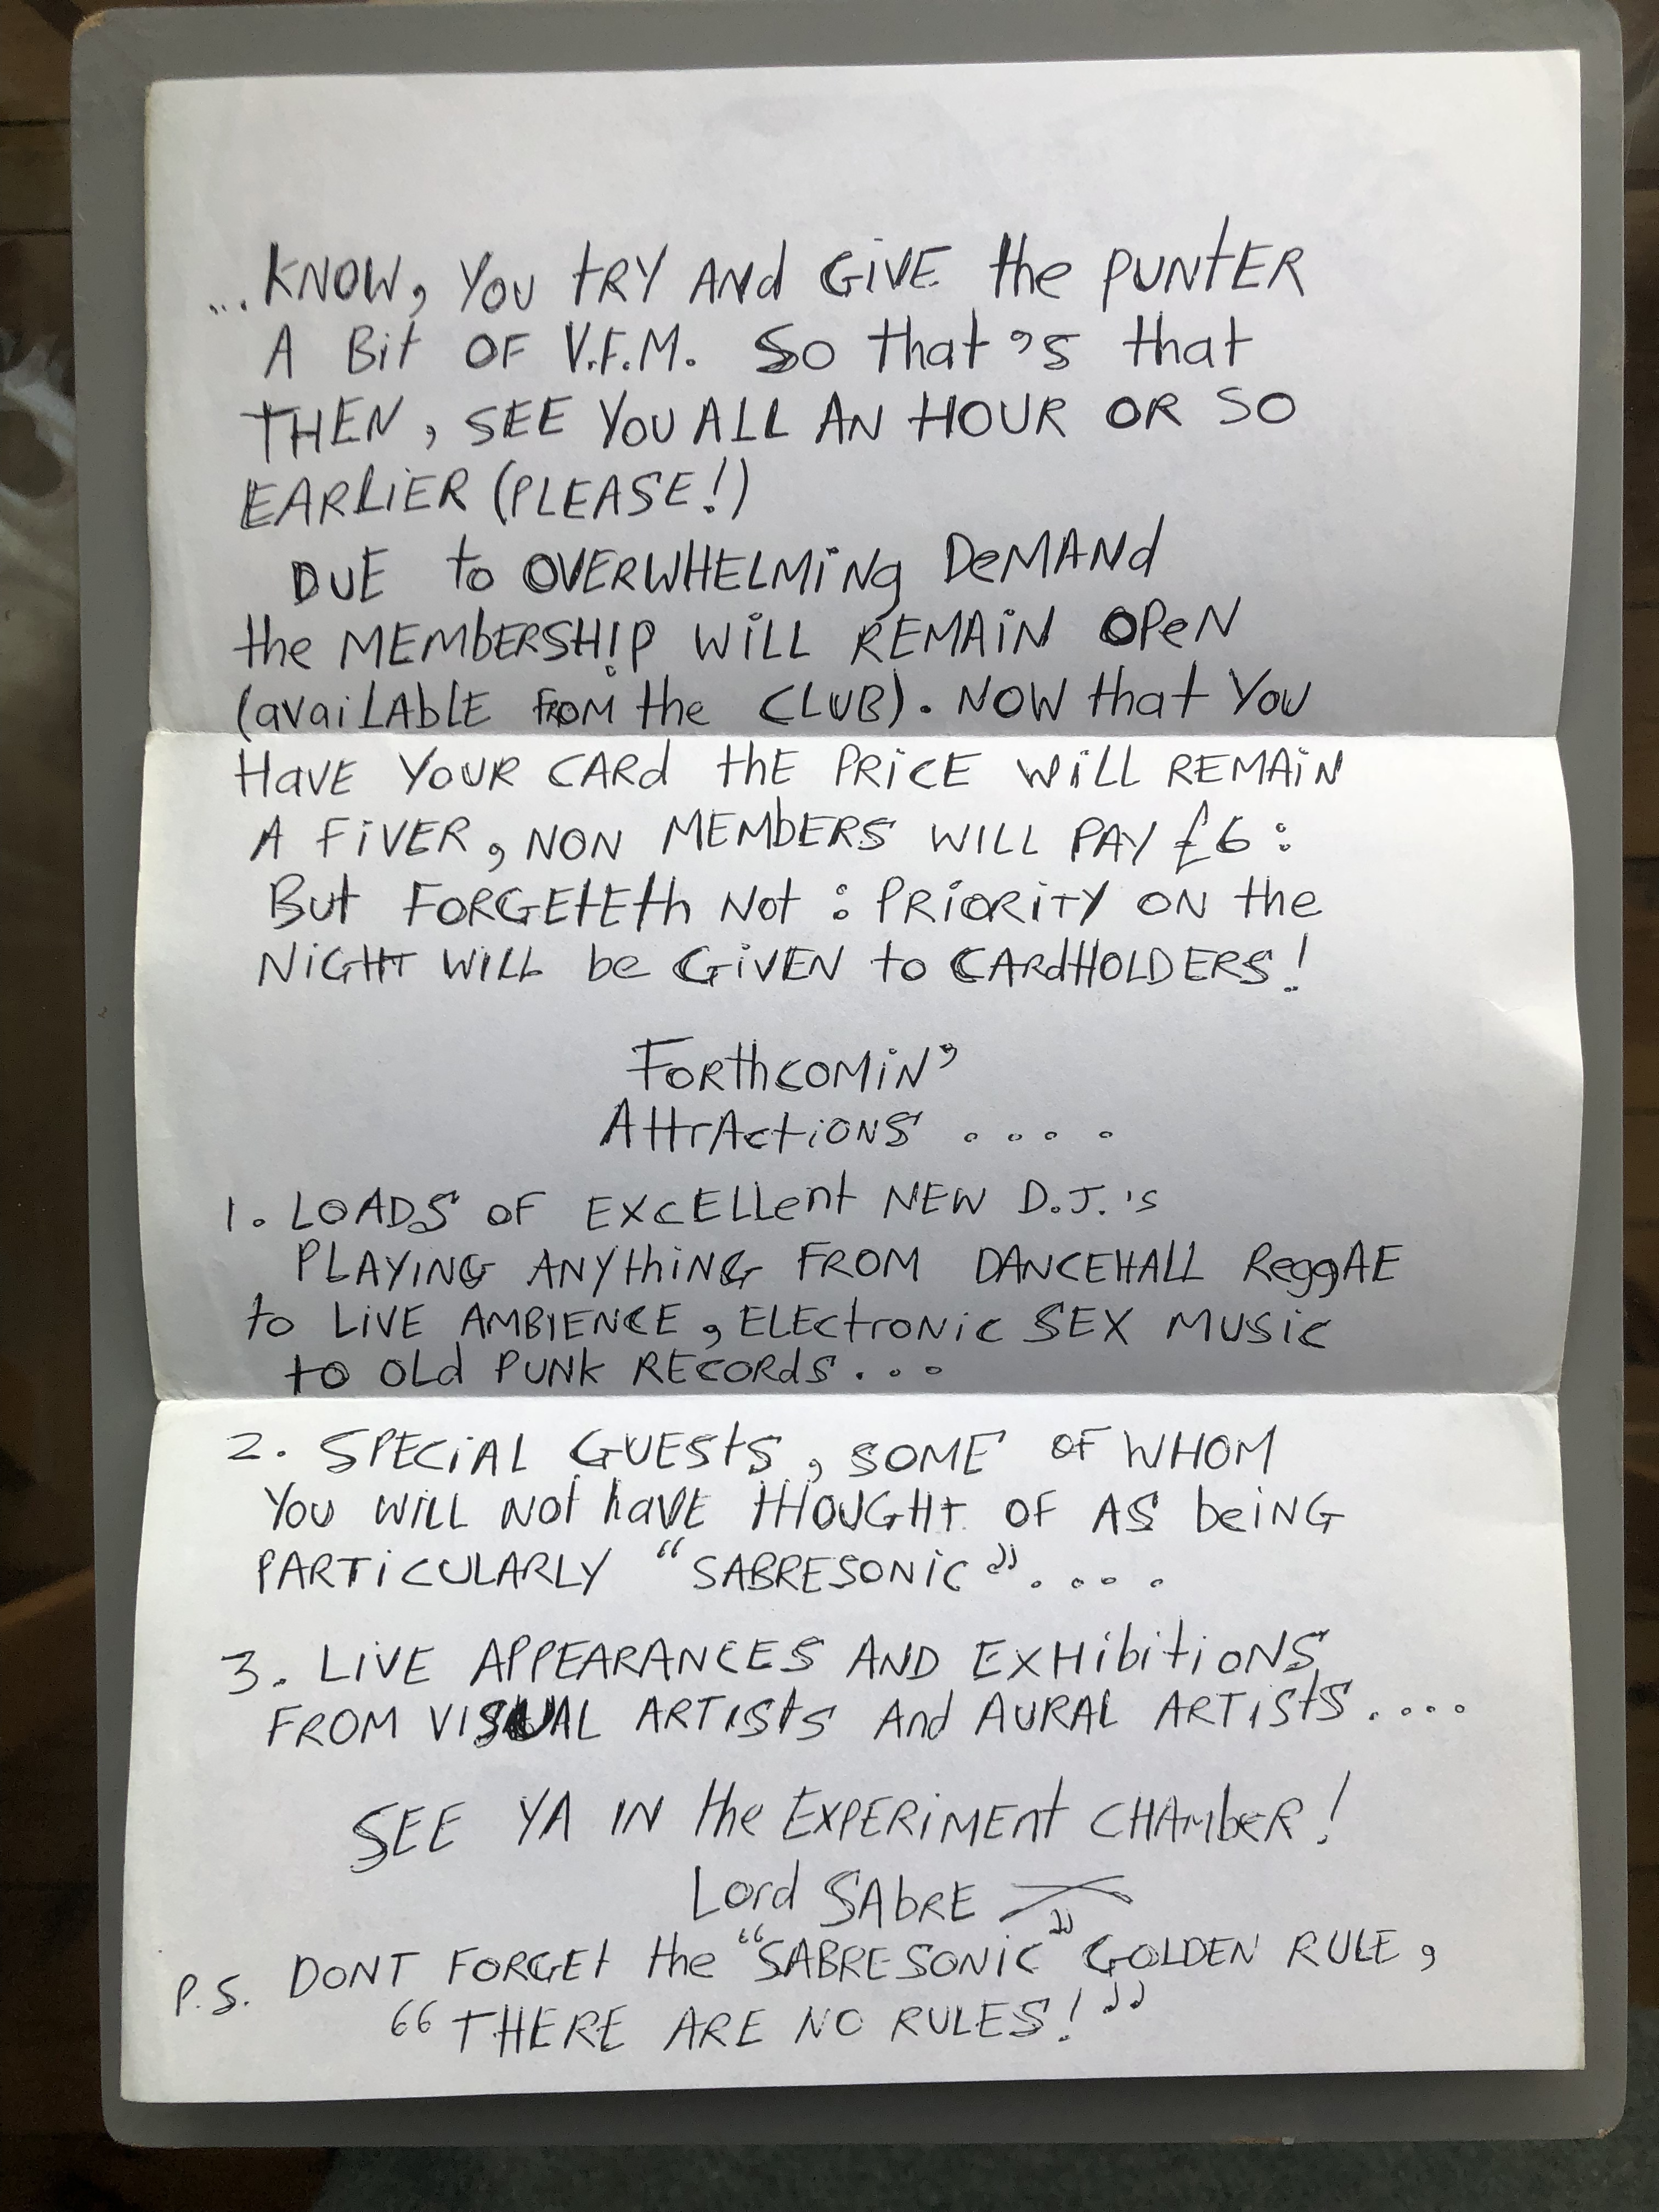 ...KNOW, YOU tRY ANd GiVE the PUNtER
A Bit OF V.F.M. So that's that
THEN, SEE YOU ALL AN HOUR OR SO
EARLiER (PLEASE!)
DUE to OVERWHELMiNg DeMANd
the MEMbERSHiP WiLL REMAiN OPeN
(avaiLAbLE FROM the CLUB). NOW that YOU
HavE YOUR CARd thE PRiCE WiLL REMAiN
A FiVER, NON MEMbERS WILL PAY £6:
But FORGEtEth Not: PRiORiTY ON the
NiGHT WiLL be GiVEN to CARdHOLDERS!
FoRthcOMiN'
AttrActiONS ....
1. LOADS OF EXCELLent NEW D.J.'s
PLAYiNG ANYthiNG FROM DANCEHALL ReggAE
to LiVE AMBIENCE, ELEctroNic SEX MUSic
to OLd PUNK RECORdS...
2. SPECiAL GUEStS, SOME OF WHOM
YOU WiLL Not haVE tHOUGHT OF AS beiNG
PARTiCULARLY "SABRESONiC"....
3. LiVE APPEARANCES AND EXHibitiONS
FROM VISUAL ARTiStS And AURAL ARTiStS....
SEE YA IN the EXPERiMEnt CHAmbER!
Lord SAbRE
P.S. DONT FORGEt the "SABRESONiC" GOLDEN RULE,
"THERE ARE NO RULES!"